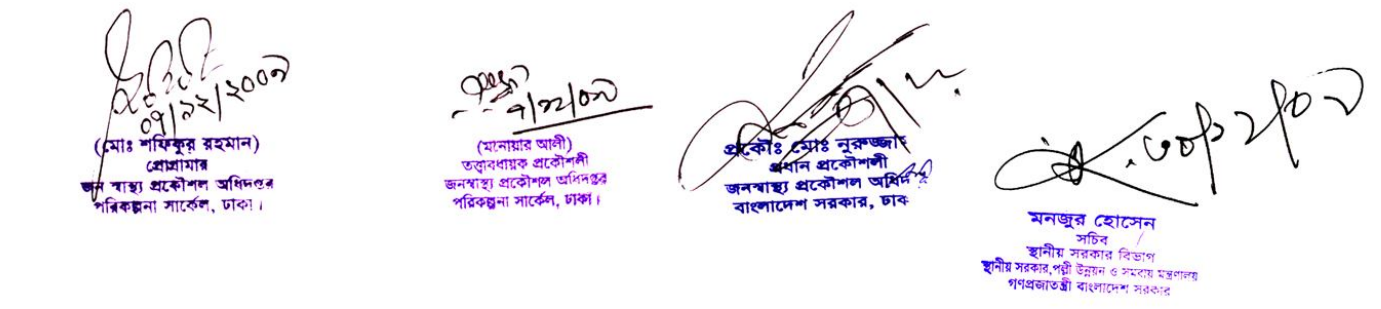 ০৭/১২/২০০৯
(মোঃ শফিকুর রহমান)
প্রোগ্রামার
জন স্বাস্থ্য প্রকৌশল অধিদপ্তর
পরিকল্পনা সার্কেল, ঢাকা।
৭/১২/০৯
(মনোয়ার আলী)
তত্ত্বাবধায়ক প্রকৌশলী
জনস্বাস্থ্য প্রকৌশল অধিদপ্তর
পরিকল্পনা সার্কেল, ঢাকা।
প্রকৌঃ মোঃ নুরুজ্জা
প্রধান প্রকৌশলী
জনস্বাস্থ্য প্রকৌশল
বাংলাদেশ সরকার, ঢাক
৩০/১২/০৯
মনজুর হোসেন
সচিব
স্থানীয় সরকার বিভাগ
স্থানীয় সরকার,পল্লী উন্নয়ন ও সমবায় মন্ত্রণালয়
গণপ্রজাতন্ত্রী বাংলাদেশ সরকার